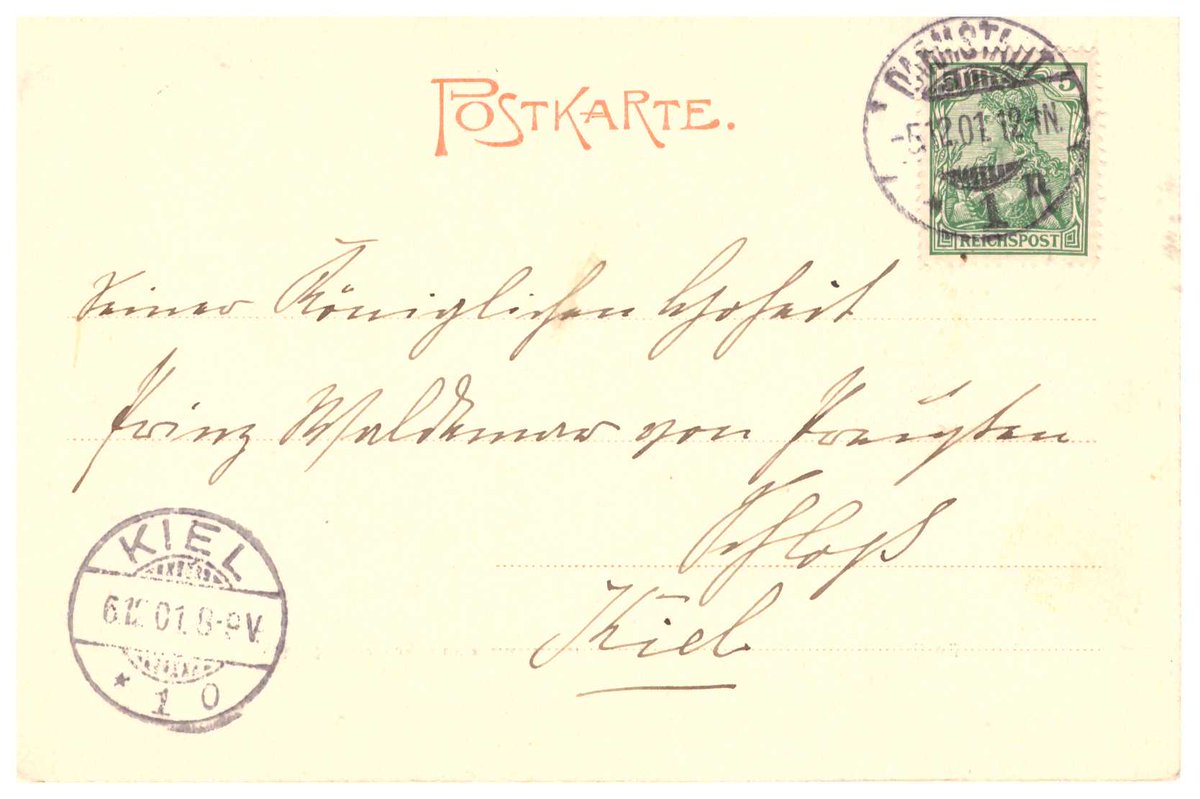 POSTKARTE.
DARMSTADT
5
5.12.01. 12-1N.
* 1 n
REICHSPOST
Seiner Königlichen Hoheit
Prinz Waldemar von Preußen
Schloß
Kiel
KIEL
6.12.01. 8-9V.
* 1 O